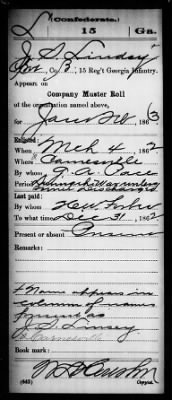 (Confederate.)
L 15 Ga.
J. S. Lindsey
Pvt, Co. B, 15 Reg't Georgia Infantry.
Appears on
Company Muster Roll
of the organization named above,
for Jany & Feb, 1863
Enlisted:
When Mch 4, 1862
Where Carnesville
By whom
Period
Last paid:
By whom
To what time Dec 31, 1862
Present or absent Present
Remarks:
+ Name appears in
column of names
present as
J. S. Linsey
Book mark:
(642) Copyist.